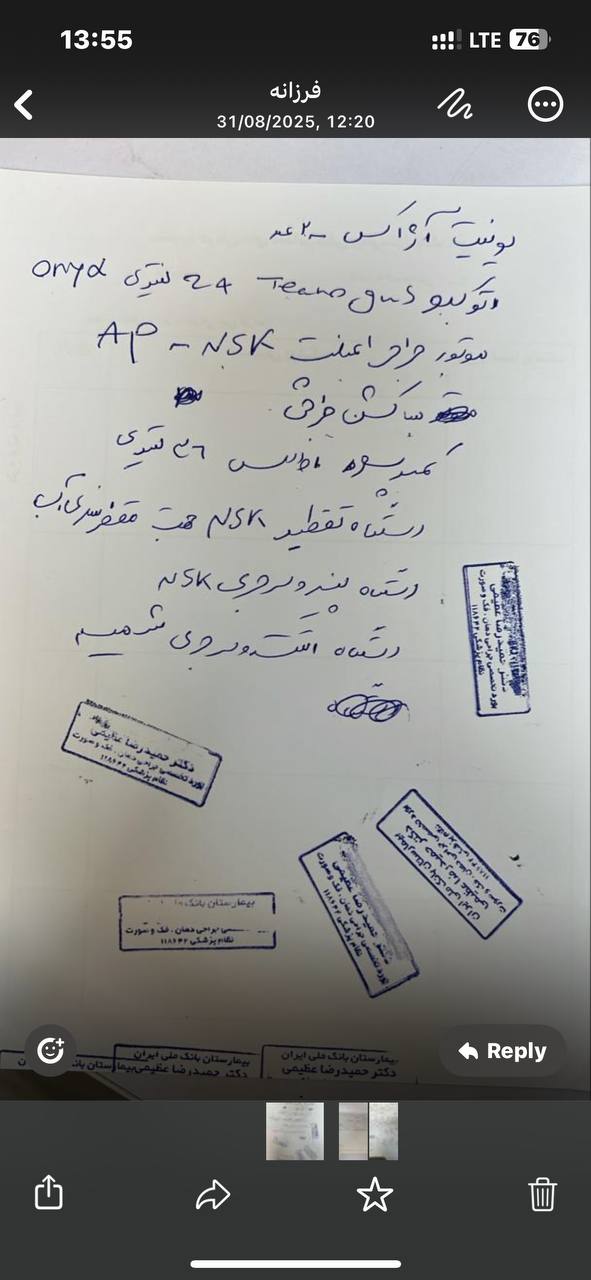 13:55
LTE 76
فرزانه
31/08/2025, 12:20
یونیت آژاکس - ۲ عدد
اتوکلاو Teano gus ۲۴ لیتری onyx
موتور جراحی ایمپلنت AP - NSK
ساکشن جراحی
کمپرسور ۳۶ لیتری
دستگاه تقطیر NSK جهت مقطر سازی آب
دستگاه پیزوسرجری NSK
دستگاه الکتروسرجری
دکتر حمیدرضا عظیمی
بورد تخصصی جراحی دهان ، فک و صورت
نظام پزشکی ۱۱۸۶۴۲
دکتر حمیدرضا عظیمی
بورد تخصصی جراحی دهان ، فک و صورت
نظام پزشکی ۱۱۸۶۴۲
بیمارستان بانک ملی ایران
دکتر حمیدرضا عظیمی
بورد تخصصی جراحی دهان ، فک و صورت
نظام پزشکی ۱۱۸۶۴۲
دکتر حمیدرضا عظیمی
بورد تخصصی جراحی دهان ، فک و صورت
نظام پزشکی ۱۱۸۶۴۲
بیمارستان بانک
جراحی دهان ، فک و صورت
نظام پزشکی ۱۱۸۶۴۲
بیمارستان بانک ملی ایران
دکتر حمیدرضا عظیمی
بیمارستان بانک ملی ایران
دکتر حمیدرضا عظیمی
Reply